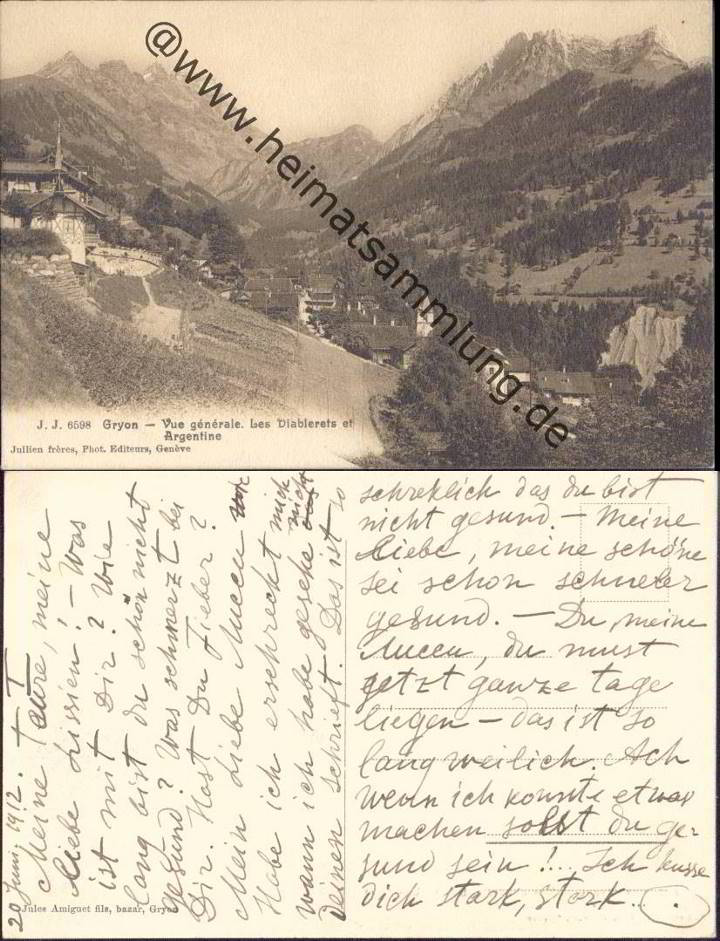 @www.heimatsammlung.de
J. J. 6598 Gryon — Vue générale. Les Diablerets et
Argentine
Jullien frères, Phot. Editeurs, Genève
20 Juni, 1912.
Meine Teure, meine
liebe Lissien! – Was
ist mit Dir? Wie
lang bist du schon nicht
gesund? Was schmerzt bei
Dir. Hast Du Fieber?
Mein liebe
Habe ich erschreckt mich
wann ich habe gesehe nicht
Deinen schrieft. Das ist so
schreklich das du bist
nicht gesund. – Meine
liebe, meine schöne
sei schon schneler
gesund. – Du, meine
du must
getzt ganze tage
liegen – das ist so
langweilich. Ach
wenn ich konnte etwas
machen sollst du ge-
sund sein!... Ich kusse
Dich stark, stark...
Jules Amiguet fils, bazar, Gryon